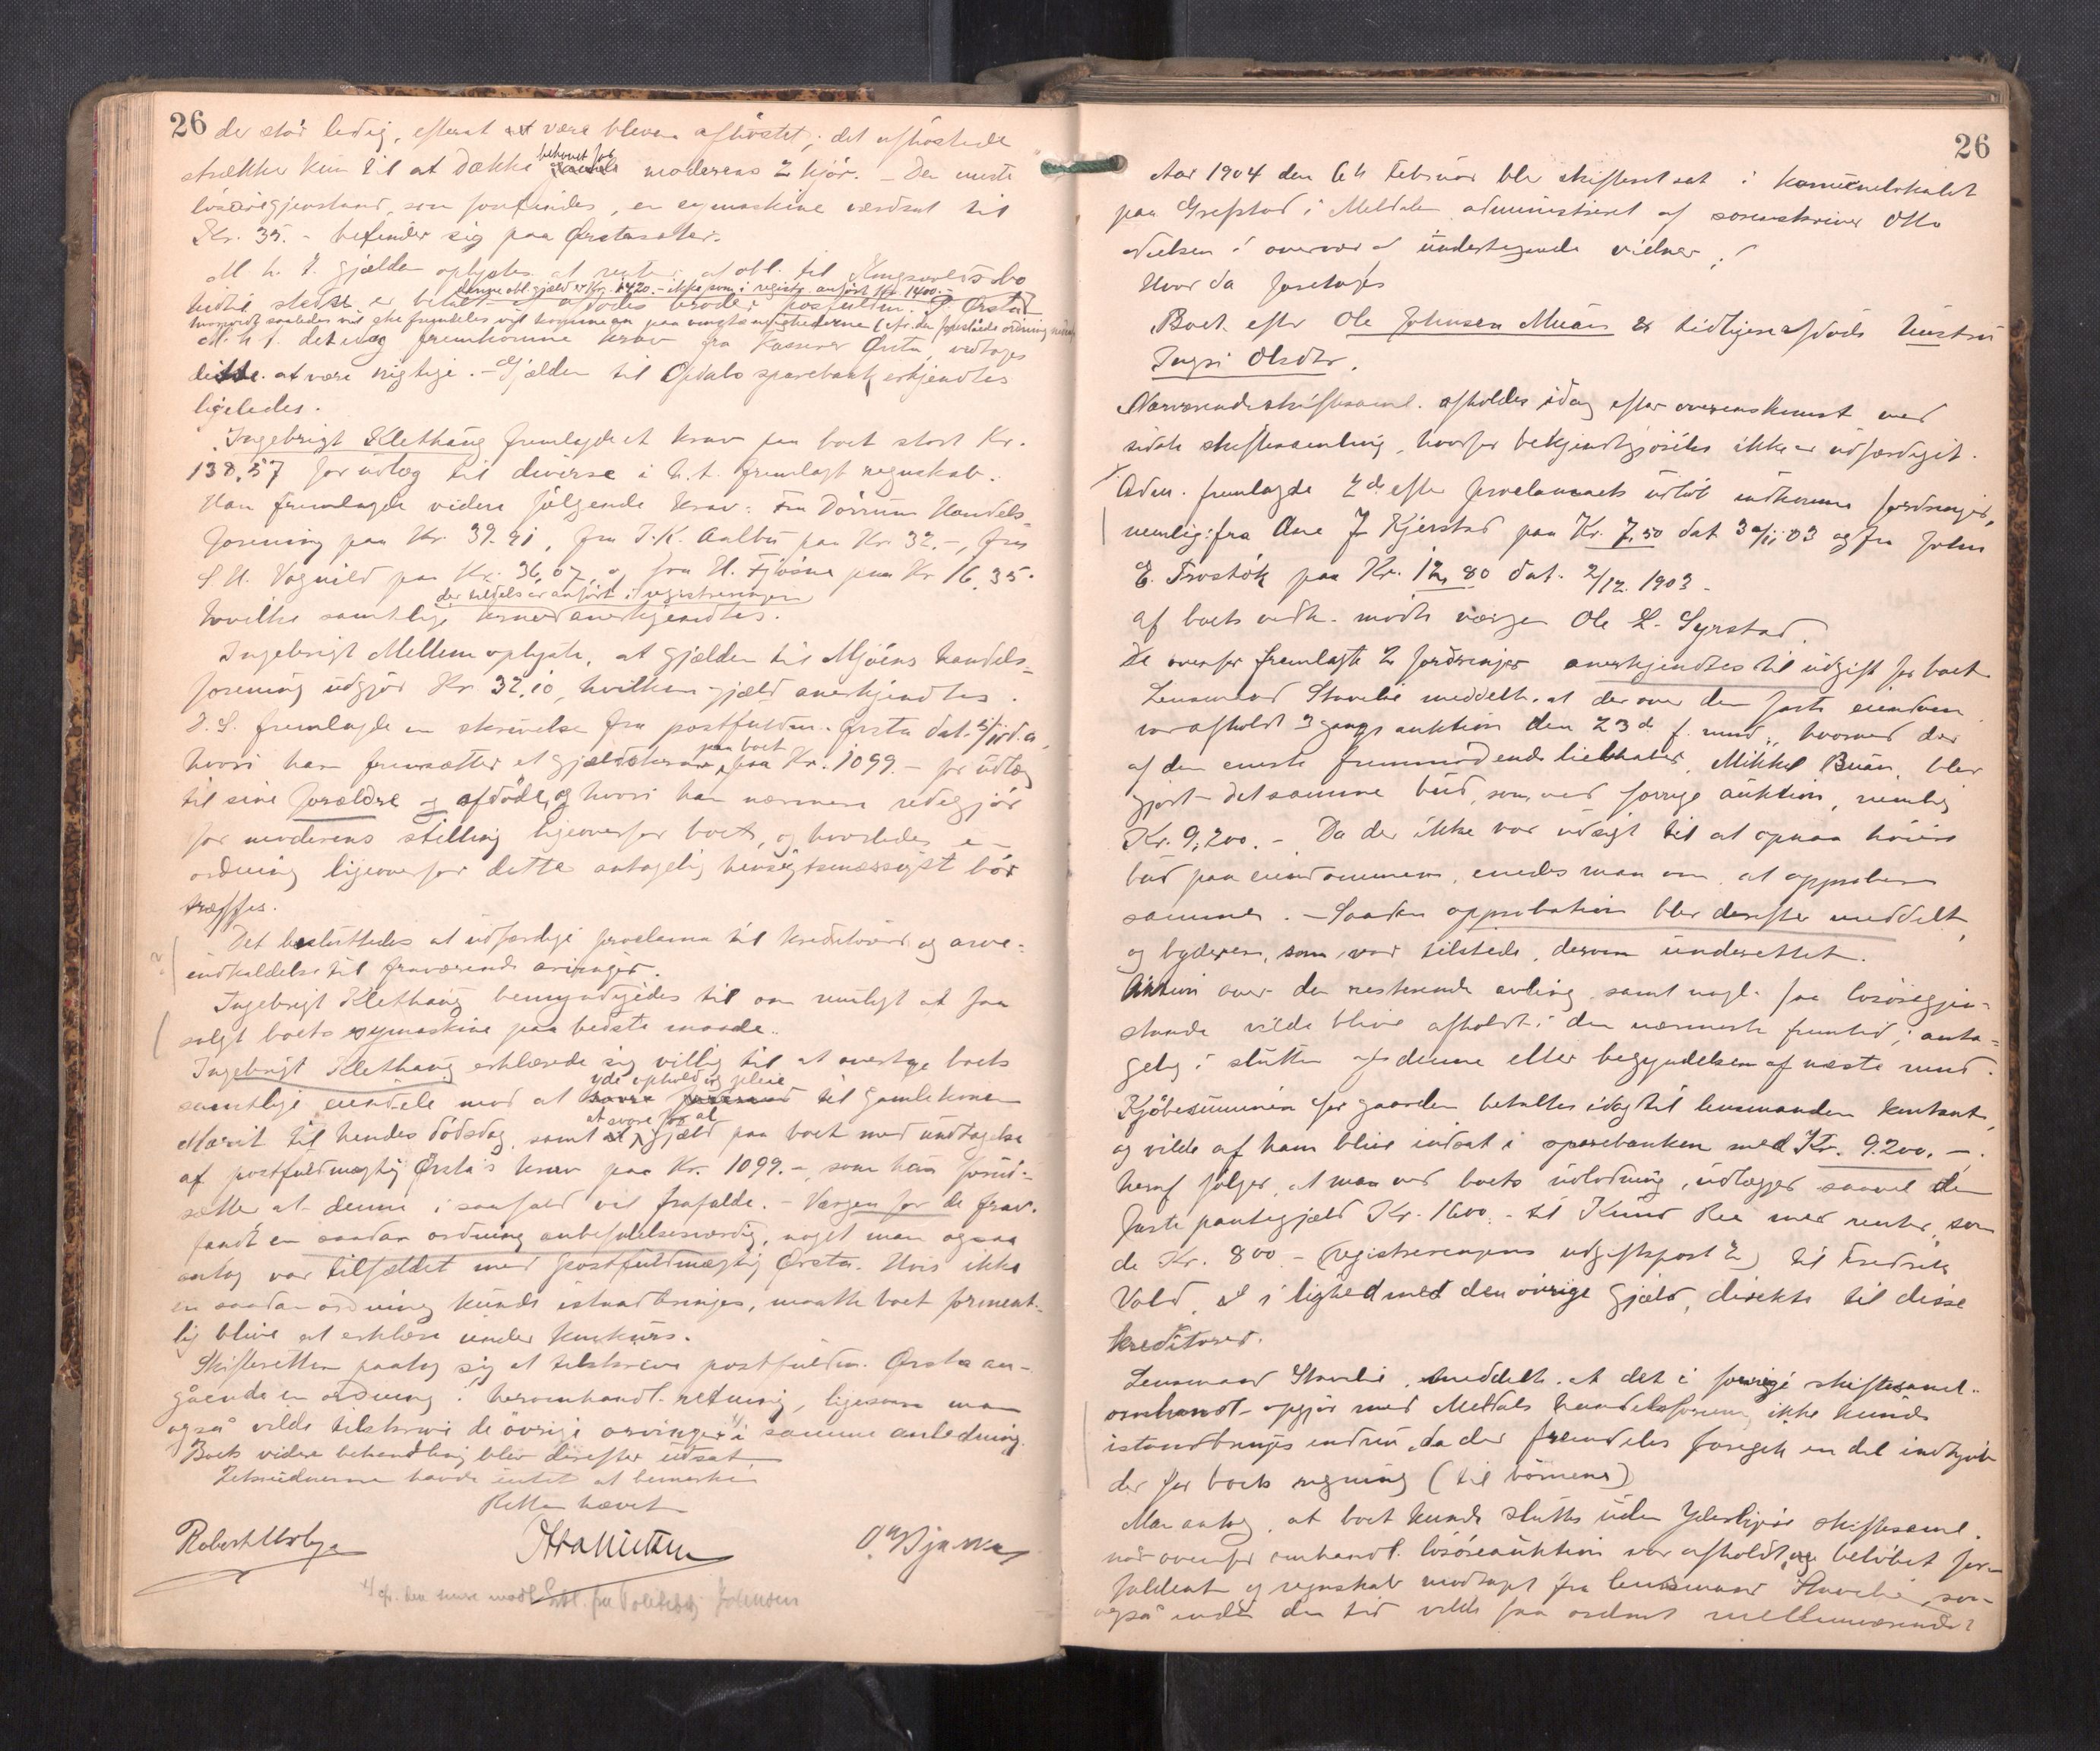 26
de står ledig, efterat være bleven afhøstet; det afhøstede
strækker kun til at dække behovet for moderens 2 kjør. – Den eneste
løsøregjenstand, som forefindes, en symaskine værdsat til
Kr. 35.- befinder sig paa Ørstasæter.
M. h. t. gjælden oplystes at renter af obl. til Kongsvolds bo
denne obl. gjæld er Kr. 1420.- ikke som i registr. anført Kr. 1400.-
hidtil stedse er betalt af afdødes broder postfuldm. Ørsta
M. h. t. det idag fremkomne krav fra Kasserer Ørsta, vedtoges
dette at være rigtige. – Gjælden til Opdals sparebank erkjendtes
ligeledes.
Ingebrigt Klethaug fremlagde et krav paa boet stort Kr.
138,57 for udlæg til diverse i h. t. fremlagt regnskab.
Han fremlagde videre følgende krav: Fra Dørrum Handels-
forening paa Kr. 39.91, fra J. K. Aalbu paa Kr. 32.-, fra
S. H. Vognild paa Kr. 36,07, og fra H. Fjøsne paa Kr. 16.35.
der tildels er anført i registreringen
hvilke samtlige krav anerkjendtes.
Ingebrigt Mellem oplyste, at gjælden til Mjøens handels-
forening udgjør Kr. 32,10, hvilken gjæld anerkjendtes.
D. S. fremlagde en skrivelse fra postfuldm. Ørsta dat.
hvori han fremsætter et gjældskrav paa boet paa Kr. 1099.- for udlæg
til sine forældre og afdøde, og hvori han nærmere redegjør
for moderens stilling ligeoverfor boet, og hvorledes en
ordning ligeoverfor dette antagelig hensigtsmæssigst bør
træffes.
Det besluttedes at udfærdige proclama til kreditorer og arve-
indkaldelse til fraværende arvinger.
Ingebrigt Klethaug bemyndigedes til om muligt at faa
solgt boets symaskine paa bedste maade.
Ingebrigt Klethaug erklærede sig villig til at overtage boets
samtlige eiendele mod at yde ophold og pleie til gamlekonen
Marit til hendes dødsdag, samt at svare for al gjæld paa boet med undtagelse
af postfuldmægtig Ørsta's krav paa Kr. 1099.-, som han forud-
sætter at denne i saafald vil frafalde. – Værgen for de frav.
fandt en saadan ordning anbefalelsesværdig, noget man ogsaa
antog var tilfældet med postfuldmægtig Ørsta. Hvis ikke
en saadan ordning kunde istandbringes, maatte boet forment-
lig blive at erklære under konkurs.
Skifteretten paatog sig at tilskrive postfuldm. Ørsta an-
gående en ordning i heromhandl. retning, ligesom man
også vilde tilskrive de øvrige arvinger i samme anledning.
Boets videre behandling blev derefter udsat.
Retsvidnerne havde intet at bemærke
Retten hævet
26
Aar 1904 den 6te Februar blev skifteret sat i Komunelokalet
paa Grefstad i Meldalen administreret af sorenskriver Otto
Nielsen i overvær af undertegnede vidner:
Hvor da foretoges
Boet efter Ole Johnsen Muan & tidligere afdøde hustru
Ingri Olsdtr.
Nærværende skiftesaml. afholdes idag efter overenskomst ved
sidste skiftesamling, hvorfor bekjendtgjørelse ikke er udfærdiget.
Adm. fremlagde 2de efter proclamaets udløb indkomne fordringer,
nemlig: fra Ane J. Kjerstad paa Kr. 7,50 dat. 30/11 03 og fra John
E. Trostøk paa Kr. 12,80 dat. 2/12. 1903.
Af boets vedk. mødte værgen Ole L. Syrstad.
De ovenfor fremlagte 2 fordringer anerkjendtes til udgift for boet.
Lensmand Stavlie meddelte, at der over den faste eiendom
var afholdt 3 gangs auktion den 23de f. mnd., hvorved der
af den eneste fremmødende liebhaber, Mikkel Buan, blev
gjort det samme bud, som ved forrige auktion, nemlig
Kr. 9,200.- Da der ikke var udsigt til at opnaa høiere
bud paa eiendommen, enedes man om at approbere
samme. – Saadan approbation blev derefter meddelt,
og byderen, som var tilstede, derom underettet.
Auktion over den resterende avling samt nogl. faa løsøregjen-
stande vilde blive afholdt i den nærmeste fremtid, anta-
gelig i slutten af denne eller begyndelsen af næste mnd.
Kjøbesummen for gaarden betaltes idag til lensmanden kontant,
og vilde af ham blive indsat i sparebanken med Kr. 9.200.-.
heraf følger, at man ved boets udlodning, udlægger saavel den
faste pantegjæld Kr. 1600.- til Knud Ree med renter, som
de Kr. 800.- (registreringens udgiftspost 2) til Fredrik
Vold, i lighed med den øvrige gjæld, direkte til disse
kreditorer.
Lensmand Stavlie meddelte, at det i forrige skiftesaml.
omhandl. opgjør med Meldals handelsforening ikke kunde
istandbringes endnu, da der fremdeles foregik en del indkjøb
der for boets regning (til børnene)
Man antog, at boet kunde sluttes uden yderligere skiftesaml.
når ovenfor omhandl. løsøreauktion var afholdt, og beløbet for-
faldent og regnskab modtaget fra lensmand Stavlie, som
også inden den tid vilde faa ordnet mellemværende